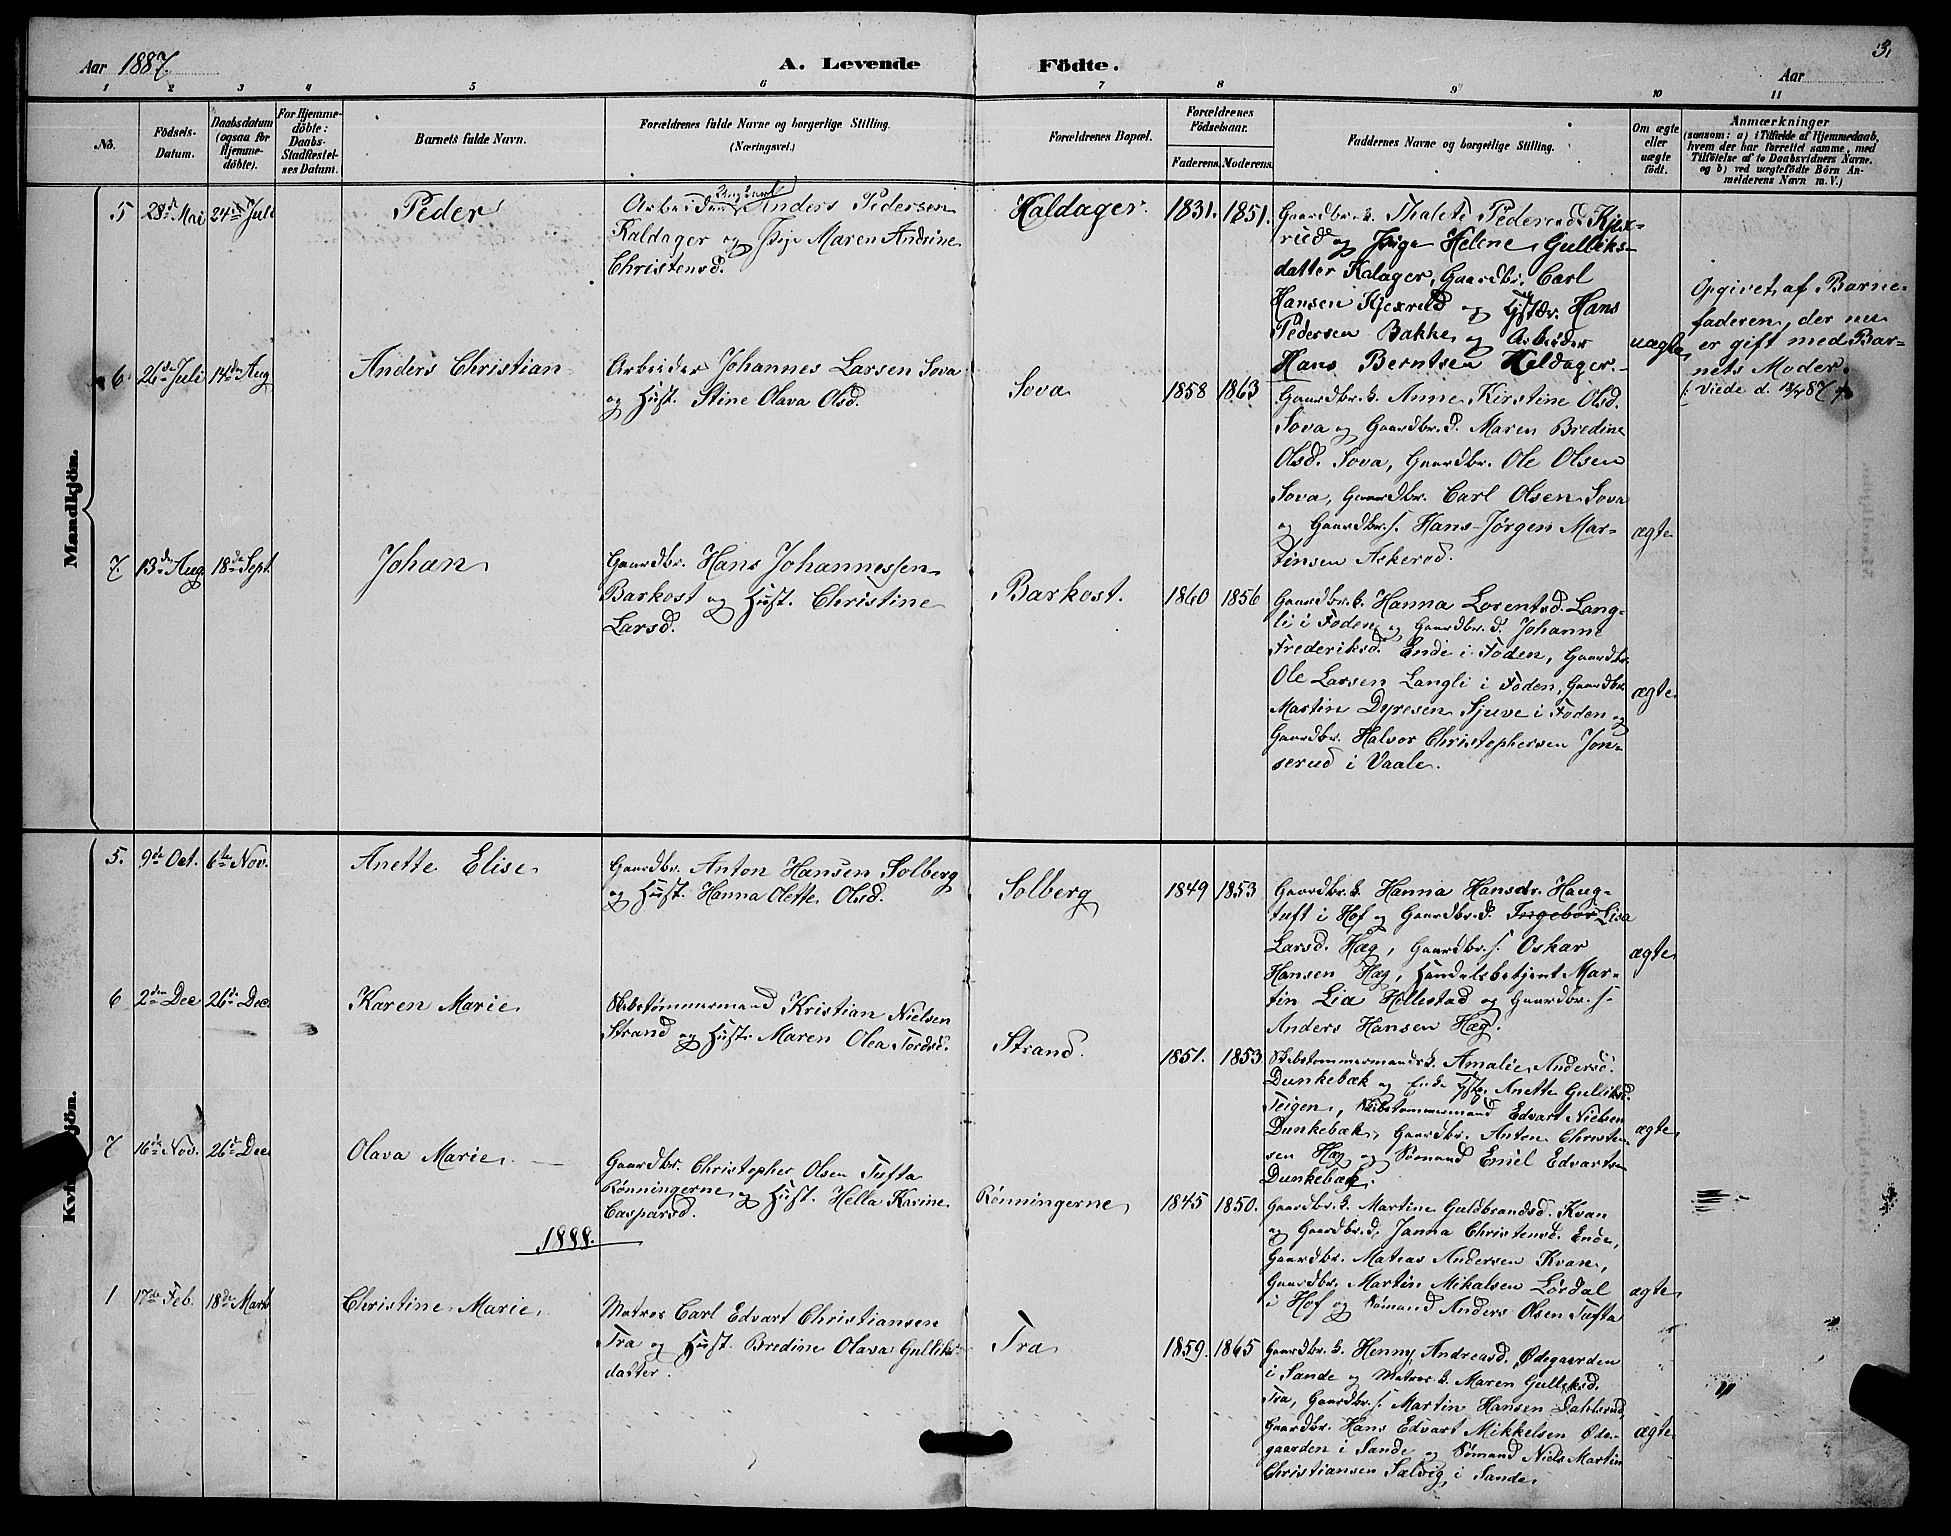 Aar 1887. A. Levende Födte. Aar 3.
1 2 3 4 5 6 7 8 9 10 11
No.
Födsels-
Datum.
Daabsdatum
(ogsaa for
Hjemme-
döbte).
For Hjemme-
döbte:
Daabs-
Stadfæstel-
ses Datum.
Barnets fulde Navn.
Forældrenes fulde Navne og borgerlige Stilling.
(Næringsvei.)
Forældrenes Bopæl.
Forældrenes
Födselsaar.
Faderens. Moderens.
Faddernes Navne og borgerlige Stilling.
Om ægte
eller
uægte
födt.
Anmærkninger
(saasom: a) i Tilfælde af Hjemmedaab,
hvem der har forrettet samme, med
Tilföielse af to Daabsvidners Navne,
og b) ved uægtefödte Börn An-
melderens Navn m. V.)
Mandkjön.
5 28de Mai 24de Juli
Peder
Arbeider Anders Pedersen
Kaldager og Pige Maren Andrine
Christensd.
Haldager. 1831. 1851.
Gaardbr.k. Thalete Pedersd. Kjex-
rud og Pige Helene Gulliks-
datter Kalager, Gaardbr. Carl
Hansen Kjexrud og Hans
Pedersen Bakke og Arbeider
Hans Berntsen Haldager.
uægte
Opgivet af Barne-
faderen, der nu
er gift med Bar-
nets Moder.
(: Viede d. 87 :)
6 26de Juli 14de Aug
Anders Christian
Arbeider Johannes Larsen Sova
og Hust. Stine Olava Olsd.
Sova 1858 1863
Gaardbr.k. Anne Kirstine Olsd.
Sova og Gaardbr.d. Maren Bredine
Olsd. Sova, Gaardbr. Ole Olsen
Sova, Gaardbr. Carl Olsen Sova
og Gaardbr.s. Hans Jørgen Mar-
tinsen Askerød.
ægte
7. 13de Aug 18de Sept.
Johan
Gaardbr. Hans Johannessen
Barkost og Hust. Christine
Larsd.
Barkost. 1860 1856
Gaardbr.k. Hanna Lorentsd. Lang-
li i Foden og Gaardbr.d. Johanne
Frederiksd. Ende i Foden, Gaardbr.
Ole Larsen Langli i Foden, Gaardbr
Martin Dyresen Sjuve i Foden og
Gaardbr. Halvor Christophersen Jon-
serud i Vaale.
ægte
5. 9de Oct. 6te Nov.
Anette Elise
Gaardbr. Anton Hansen Solberg
og Hust. Hanna Olette Olsd.
Solberg 1849 1853
Gaardbr.k. Hanna Hansdr. Haug-
tuft i Hof og Gaardbr.d. Ingebor Lisa
Larsd. Hæg, Gaardbr.s. Oskar
Hansen Hæg, Handelsbetjent Mar-
tin Lia Hillestad og Gaardbr.s.
Anders Hansen Hæg.
ægte
6 2den Dec 26de Dec.
Karen Marie
Skibstømmermand Kristian Nielsen
Strand og Hust. Maren Olea Tordsd.
Strand. 1851. 1853
Skibstømmermandsk. Amalie Andersd.
Dunkebæk og Anette Gulliksd.
Teigen, Skibstømmermand Edvart Nielsen
Dunkebæk, Gaardbr. Anton Christen-
sen Hæg og Sømand Emil Edvartsen
Dunkebæk.
ægte
7 16de Nov. 26de Dec
Olava Marie
Gaardbr. Christopher Olsen Tufta
Rønningerne og Hust. Hella Karine
Casparsd.
Rønningerne 1845 1850.
Gaardbr.k. Martine Guldbrandsd. Kvan
og Gaardbr.d. Janna Christensd. Ende,
Gaardbr. Matias Andersen Kvan,
Gaardbr. Martin Mikalsen Lørdal
i Hof og Sømand Anders Olsen Tufta
ægte
1888.
1 17de Feb. 18de Marts
Christine Marie
Matros Carl Edvart Christiansen
Tra og Hust. Bredine Olava Gulliks-
datter.
Tra 1859. 1865
Gaardbr.k. Henny Andreasd. Ødegaarden
i Sande og Matros k. Maren Gulliksd.
Tra, Gaardbr.s. Martin Hansen Dahlsrud,
Gaardbr. Hans Edvart Mikkelsen Øde-
gaarden i Sande og Sømand Niels Martin
Christiansen Selvig i Sande.
ægte